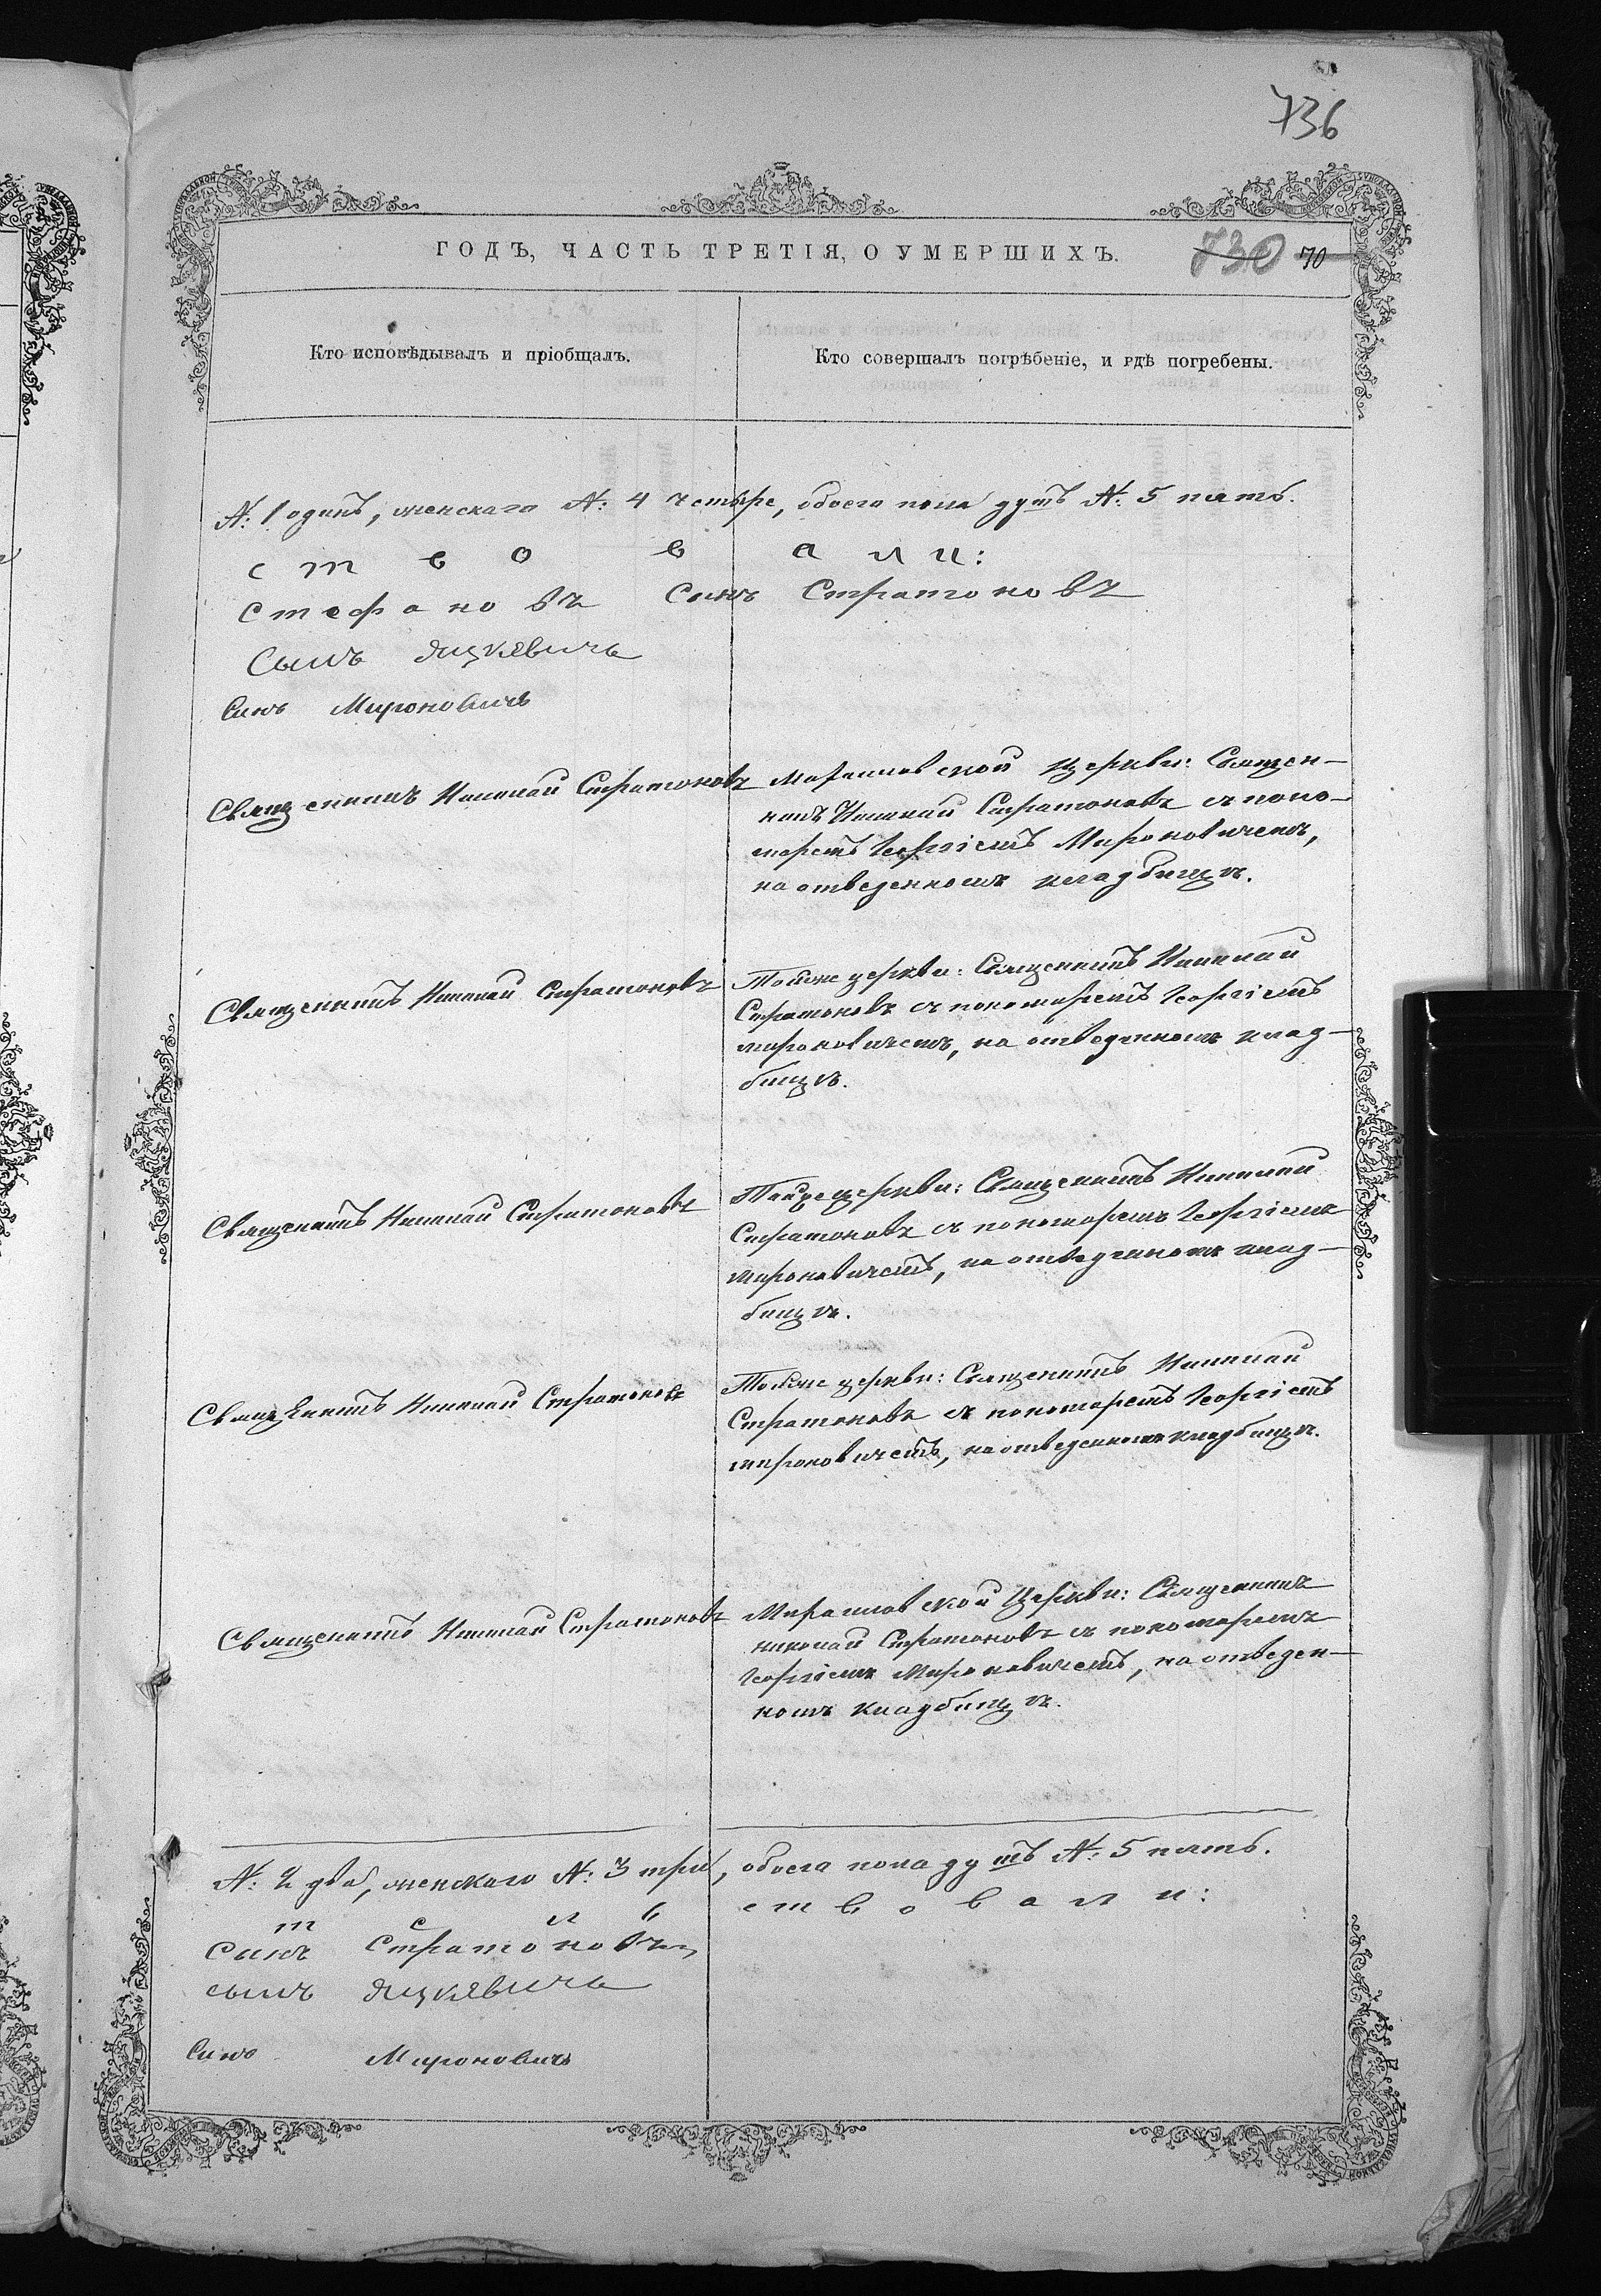 736
ГОДЪ, ЧАСТЬ ТРЕТІЯ, О УМЕРШИХЪ.
730 70
Кто исповѣдывалъ и пріобщалъ.
Кто совершалъ погрѣбеніе, и гдѣ погребены.
№: 1 одинъ, женскаго №: 4 четыре, обоего пола душъ №: 5 пять.
с т в о в а л и:
Стефановъ Сынъ Стратоновъ
Сынъ Яцкевичь
Сынъ Мироновичъ
Священникъ Николай Стратоновъ
церкви: Священ-
никъ Николай Стратоновъ съ поно-
маремъ Георгіемъ Мироновичемъ,
на отведенномъ кладбищѣ.
Священникъ Николай Стратоновъ
Тойже церкви: Священникъ Николай
Стратоновъ съ пономаремъ Георгіемъ
Мироновичемъ, на отведенномъ клад-
бищѣ.
Священникъ Николай Стратоновъ
Тойже церкви: Священникъ Николай
Стратоновъ съ пономаремъ Георгіемъ
Мироновичемъ, на отведенномъ клад-
бищѣ.
Священникъ Николай Стратоновъ
Тойже церкви: Священникъ Николай
Стратоновъ съ пономаремъ Георгіемъ
Мироновичемъ, на отведенномъ кладбищѣ.
Священникъ Николай Стратоновъ
Церкви: Священникъ
Николай Стратоновъ съ пономаремъ
Георгіемъ Мироновичемъ, на отведен-
номъ кладбищѣ.
№: 2 два, женскаго №: 3 три, обоего пола душъ №: 5 пять.
т е л ь с т в о в а л и:
Сынъ Стратоновъ
сынъ Яцкевичь
Сынъ Мироновичъ